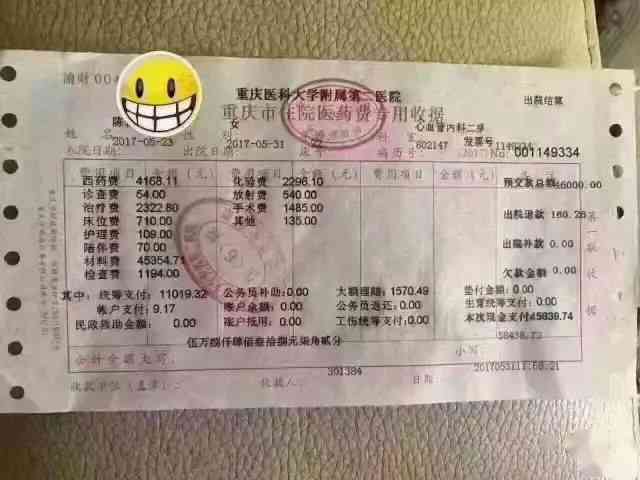 渝财00
重庆医科大学附属第二医院
出院结算
重庆市住院医药费专用收据
陈 女 心血管内科二
姓名 性别 科室 发票号
2017-05-23 2017-05-31 22 602147 1149334
入院日期: 出院日期: 床号 病历号: (2017) No: 001149334
费用项目 金额(元) 费用项目 金额(元) 费用项目 金额(元) 费用项目 金额(元)
西药费 4168.11 化验费 2296.10 预交款总额 46000.00
诊查费 54.00 放射费 540.00
治疗费 2322.80 手术费 1485.00 出院退款 160.26
床位费 710.00 其他 135.00
护理费 109.00 出院补款 0.00
陪伴费 70.00
材料费 45354.71 欠款金额 0.00
检查费 1194.00
其中: 统筹支付: 11019.32 公务员补助: 0.00 大额理赔: 1570.49 垫付金额: 0.00
帐户支付: 9.17 帐户余额: 0.00 公务员返还: 0.00 统筹支付: 0.00
民政救助金额: 0.00 帐户抵用: 0.00 工伤统筹支付: 0.00 本次现金支付 45839.74
58438.72
伍万捌仟肆佰叁拾捌元柒角贰分
合计金额大写: 小写:
301384 20170531
收款单位(盖章): 收款人: 日期:
第一联 收据